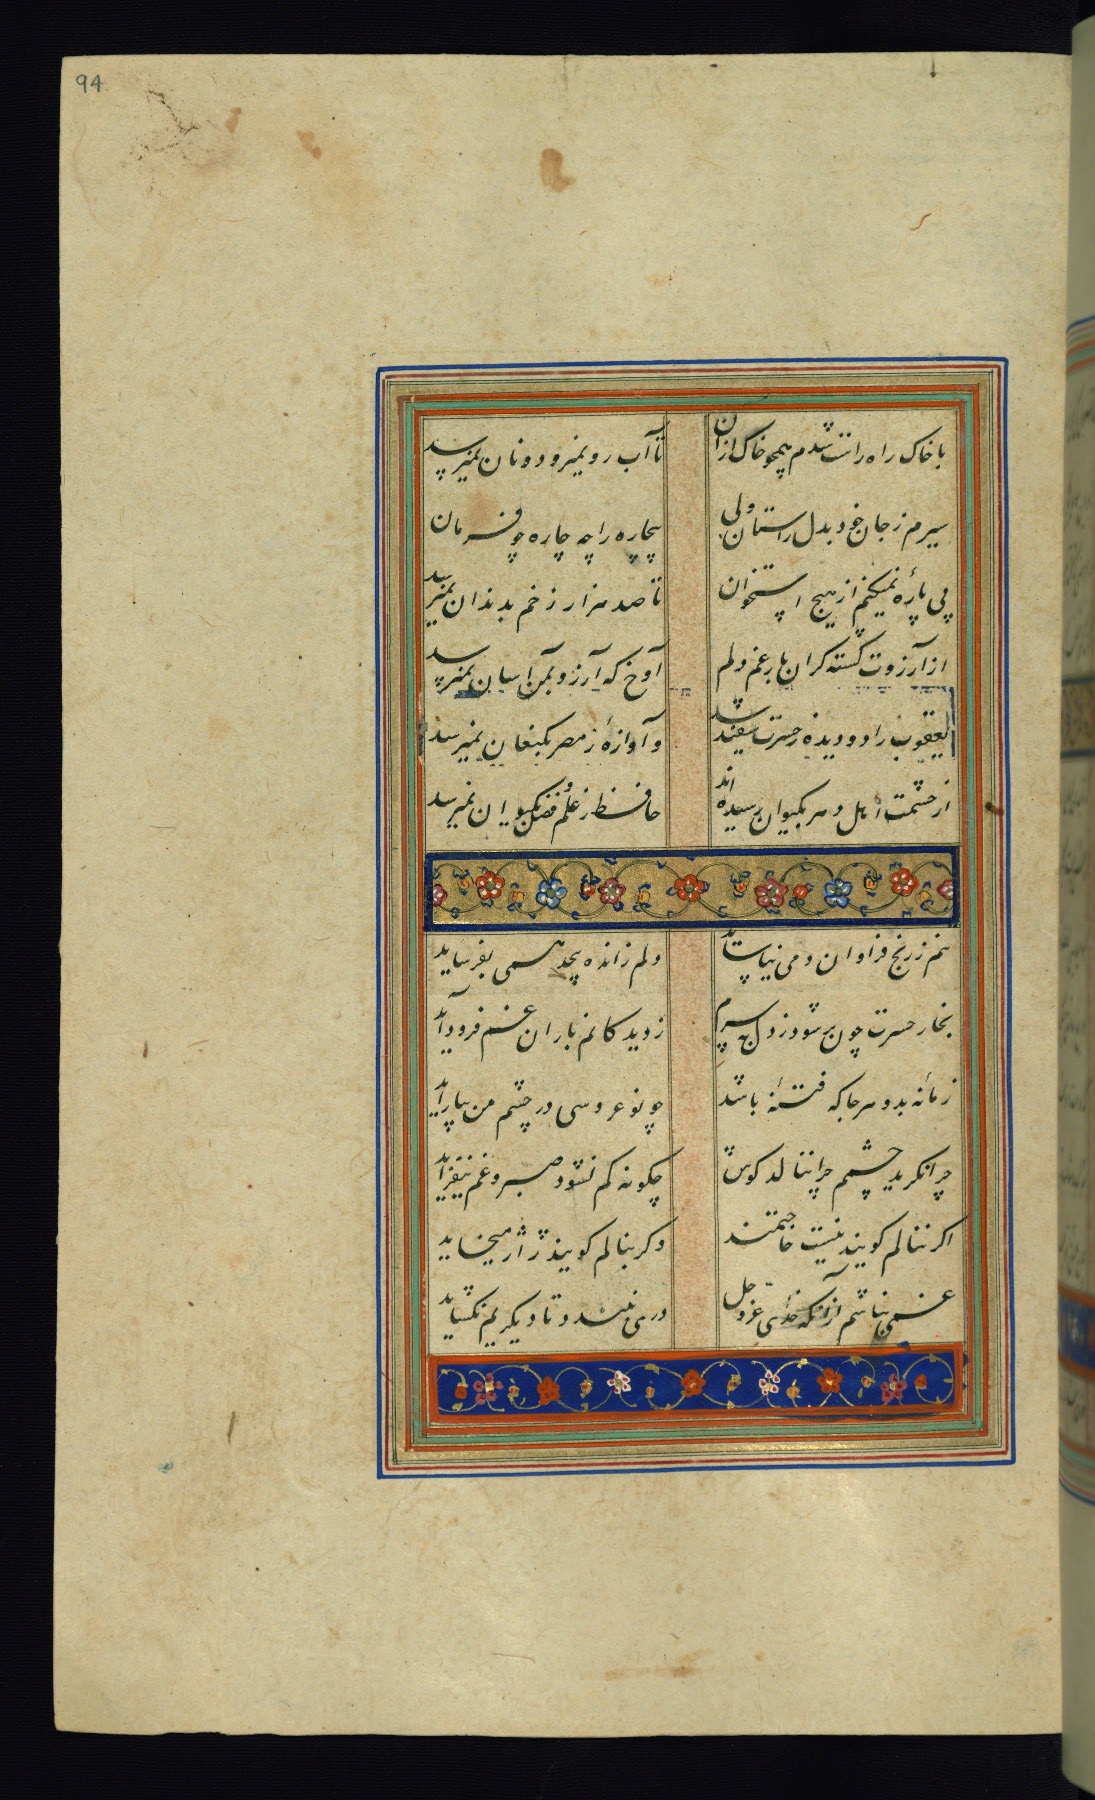 94
با خاک راه راست شدم همچو خاک از ان
تا آب رو نمیرود و نان نمیرسد
سیرم ز جان خود بدل راستان ولی
بیچاره را چه چاره چو فرمان
پی پارهٔ نمیکنم از هیچ استخوان
تا صد هزار زخم بدندان نمیرسد
از آرزوت گشته کران بار غم دلم
آوخ که آرزو بمن آسان نمیرسد
یعقوب را دو دیده ز حسرت سفید شد
و آوازهٔ ز مصر بکنعان نمیرسد
از حشمت اهل و سر بکیوان رسیده اند
حافظ ز علم و فضل بکیوان نمیرسد
تنم ز رنج فراوان
دلم ز انده بیحد همی بفرساید
بخار حسرت چون بر شود ز دل بسرم
ز دیدکانم باران غم فرود آید
زمانه بد و هر جا که فتنهٔ باشد
چو نو عروسی در چشم من بیاراید
چرا نکرید چشمم چرا ننالد کوس
چکونه کم نشود صبر و غم نیفزاید
اکر ننالم کویند نیست حاجتمند
وکر بنالم کویند ژاژ میخاید
غمی نباشم از آنکه خدای عز و جل
دری نبندد تا دیکریم نکشاید